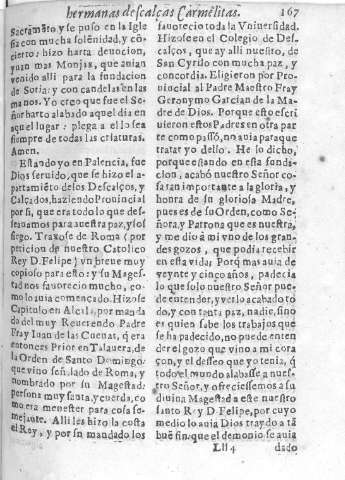 hermanas descalças Carmelitas. 267
Sacramẽto y se puso en la Igle
sia con mucha solẽnidad, y con
cierto: hizo harta deuocion,
yuan mas Monjas, que auian
venido alli para la fundacion
de Soria: y con candelas en las
manos. Yo creo que fue el Se-
ñor harto alabado aquel dia en
aquel lugar: plega a el lo sea
siempre de todas las criaturas.
Amen.
Estando yo en Palencia, fue
Dios seruido, que se hizo el a-
partamiẽto delos Descalços, y
Calçados, haziendo Prouincial
por si, que era todo lo que des-
seauamos para nuestra paz, y so
siego. Traxose de Roma (por
peticion de nuestro Catolico
Rey D. Felipe) vn breue muy
copioso para esto: y su Mages-
tad nos fauorecio mucho, co-
mo lo auia començado. Hizose
Capitulo en Alcala, por manda
do del muy Reuerendo Padre
Fray Iuan de las Cueuas, q̃ era
entonces Prior en Talauera, de
la Orden de Santo Domingo:
que vino señalado de Roma, y
nombrado por su Magestad:
persona muy santa, y cuerda, co
mo era menester para cosa se-
mejante. Alli les hizo la costa
el Rey, y por su mandado los
fauorecio toda la Vniuersidad.
Hizose en el Colegio de Des-
calços, que ay alli nuestro, de
San Cyrilo con mucha paz, y
concordia. Eligieron por Pro-
uincial al Padre Maestro Fray
Geronymo Garcian de la Ma-
dre de Dios. Porque esto escri
uieron estos Padres en otra par
te como passò, no auia para que
tratar yo dello. He lo dicho,
porque estando en esta funda-
cion, acabò nuestro Señor co-
sa tan importante a la gloria, y
honra de su gloriosa Madre,
pues es de su Orden, como Se-
ñora, y Patrona que es nuestra,
y me dio a mi vno de los gran-
des gozos, que podia recebir
en esta vida: Porq̃ mas auia de
veynte y cinco años, padecia
lo que solo nuestro Señor pue-
de entender, y verlo acabado to
do, y con tanta paz, nadie, sino
es quien sabe los trabajos que
se ha padecido, no puede enten
der el gozo que vino a mi cora
çon, y el desseo que yo tenia, q̃
todo el mundo alabasse, a nues-
tro Señor, y ofreciessemos a su
diuina Magestad a este nuestro
santo Rey D. Felipe, por cuyo
medio lo auia Dios traydo a tã
buẽ fin, que el demonio se auia
Lll 4 dado